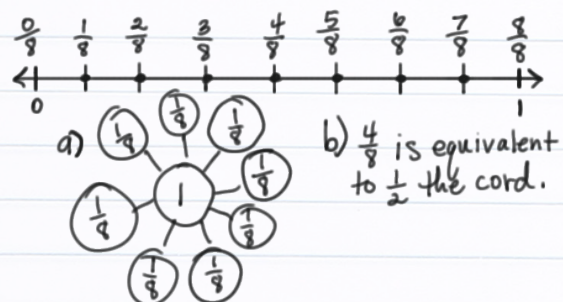 0/8 1/8 2/8 3/8 4/8 5/8 6/8 7/8 8/8
0 1
a) 1/8 1/8 1/8
1/8
1
1/8
1/8
1/8 1/8
b) 4/8 is equivalent
to 1/2 the cord.